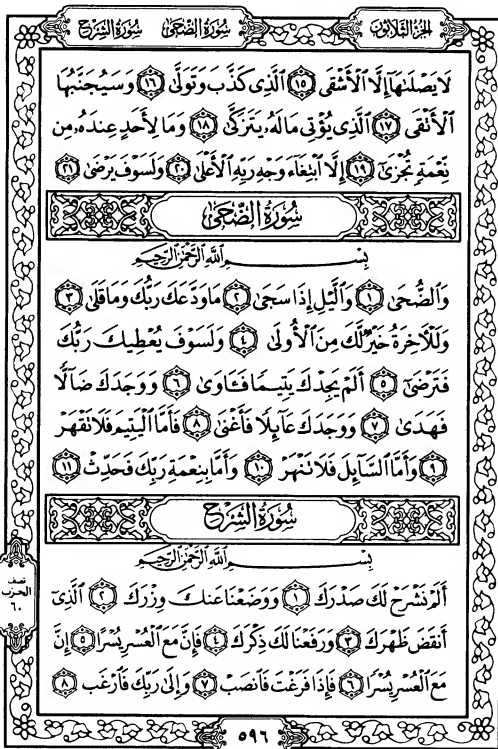 سُورَةُ الشَّرْحِ سُورَةُ الضُّحَىٰ الجُزْءُ الثَّلَاثُونَ
لَا يَصْلَىٰهَآ إِلَّا ٱلْأَشْقَى ١٥ ٱلَّذِى كَذَّبَ وَتَوَلَّىٰ ١٦ وَسَيُجَنَّبُهَا
ٱلْأَتْقَى ١٧ ٱلَّذِى يُؤْتِى مَالَهُۥ يَتَزَكَّىٰ ١٨ وَمَا لِأَحَدٍ عِندَهُۥ مِن
نِّعْمَةٍ تُجْزَىٰٓ ١٩ إِلَّا ٱبْتِغَآءَ وَجْهِ رَبِّهِ ٱلْأَعْلَىٰ ٢٠ وَلَسَوْفَ يَرْضَىٰ ٢١
سُورَةُ الضُّحَىٰ
بِسْمِ ٱللَّهِ ٱلرَّحْمَٰنِ ٱلرَّحِيمِ
وَٱلضُّحَىٰ ١ وَٱلَّيْلِ إِذَا سَجَىٰ ٢ مَا وَدَّعَكَ رَبُّكَ وَمَا قَلَىٰ ٣
وَلَلْـَٔاخِرَةُ خَيْرٌ لَّكَ مِنَ ٱلْأُولَىٰ ٤ وَلَسَوْفَ يُعْطِيكَ رَبُّكَ
فَتَرْضَىٰٓ ٥ أَلَمْ يَجِدْكَ يَتِيمًا فَـَٔاوَىٰ ٦ وَوَجَدَكَ ضَآلًّا
فَهَدَىٰ ٧ وَوَجَدَكَ عَآئِلًا فَأَغْنَىٰ ٨ فَأَمَّا ٱلْيَتِيمَ فَلَا تَقْهَرْ
٩ وَأَمَّا ٱلسَّآئِلَ فَلَا تَنْهَرْ ١٠ وَأَمَّا بِنِعْمَةِ رَبِّكَ فَحَدِّثْ ١١
سُورَةُ الشَّرْحِ
بِسْمِ ٱللَّهِ ٱلرَّحْمَٰنِ ٱلرَّحِيمِ
أَلَمْ نَشْرَحْ لَكَ صَدْرَكَ ١ وَوَضَعْنَا عَنكَ وِزْرَكَ ٢ ٱلَّذِىٓ
أَنقَضَ ظَهْرَكَ ٣ وَرَفَعْنَا لَكَ ذِكْرَكَ ٤ فَإِنَّ مَعَ ٱلْعُسْرِ يُسْرًا ٥ إِنَّ
مَعَ ٱلْعُسْرِ يُسْرًا ٦ فَإِذَا فَرَغْتَ فَٱنصَبْ ٧ وَإِلَىٰ رَبِّكَ فَٱرْغَب ٨
نصف
الحزب
٦٠
٥٩٦